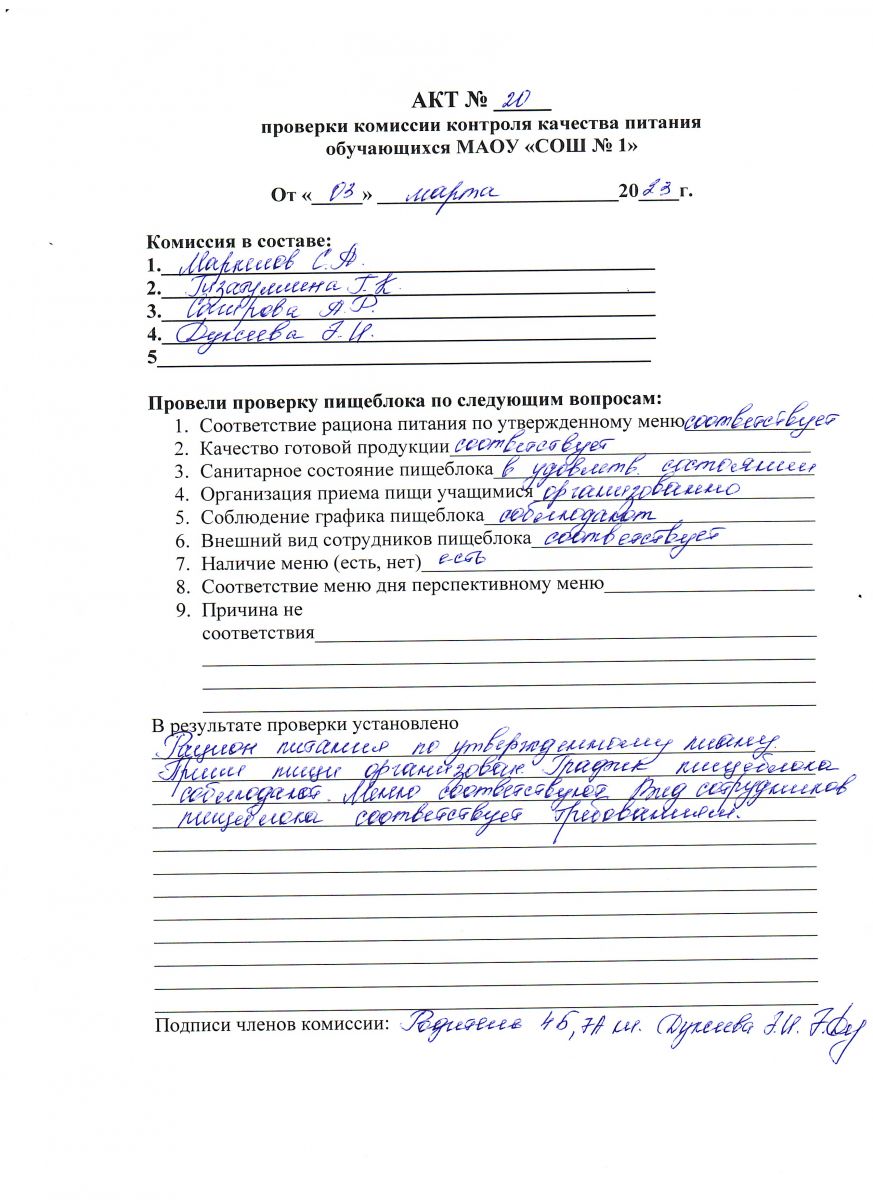 АКТ № 20
проверки комиссии контроля качества питания
обучающихся МАОУ «СОШ № 1»
От « 03 » марта 20 23 г.
Комиссия в составе:
1. Маркелов С.А.
2. Гузатуллина Г.К.
3. А.Р.
4. Э.И.
5
Провели проверку пищеблока по следующим вопросам:
1. Соответствие рациона питания по утвержденному меню соответствует
2. Качество готовой продукции соответствует
3. Санитарное состояние пищеблока в удовлетв. состоянии
4. Организация приема пищи учащимися организованно
5. Соблюдение графика пищеблока соблюдают
6. Внешний вид сотрудников пищеблока соответствует
7. Наличие меню (есть, нет) есть
8. Соответствие меню дня перспективному меню
9. Причина не
соответствия
В результате проверки установлено
Рацион питания по утвержденному плану.
Прием пищи организован. График пищеблока
соблюдают. Меню соответствуют. Вид сотрудников
пищеблока соответствует требованиям.
Подписи членов комиссии: 4Б, 7А кл. Э.И.